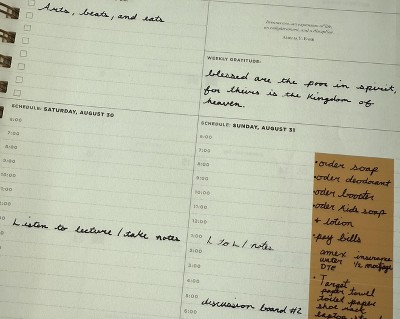 Arts, beats, and eats
WEEKLY GRATITUDE:
blessed are the poor in spirit,
for theirs is the Kingdom of
heaven.
SCHEDULE: SATURDAY, AUGUST 30
6:00
7:00
8:00
9:00
10:00
11:00
12:00
Listen to lecture / take notes
2:00
3:00
4:00
5:00
6:00
SCHEDULE: SUNDAY, AUGUST 31
6:00
7:00
8:00
9:00
10:00
11:00
12:00
1:00
L to L / notes
3:00
4:00
5:00
discussion board #2
• order soap
• oder deodorant
• oder booster
• oder kids soap
& lotion
• pay bills
amex insurance
water ½ mortgage
DTE
• Target
paper towel
toilet paper
shoe rack
laptop